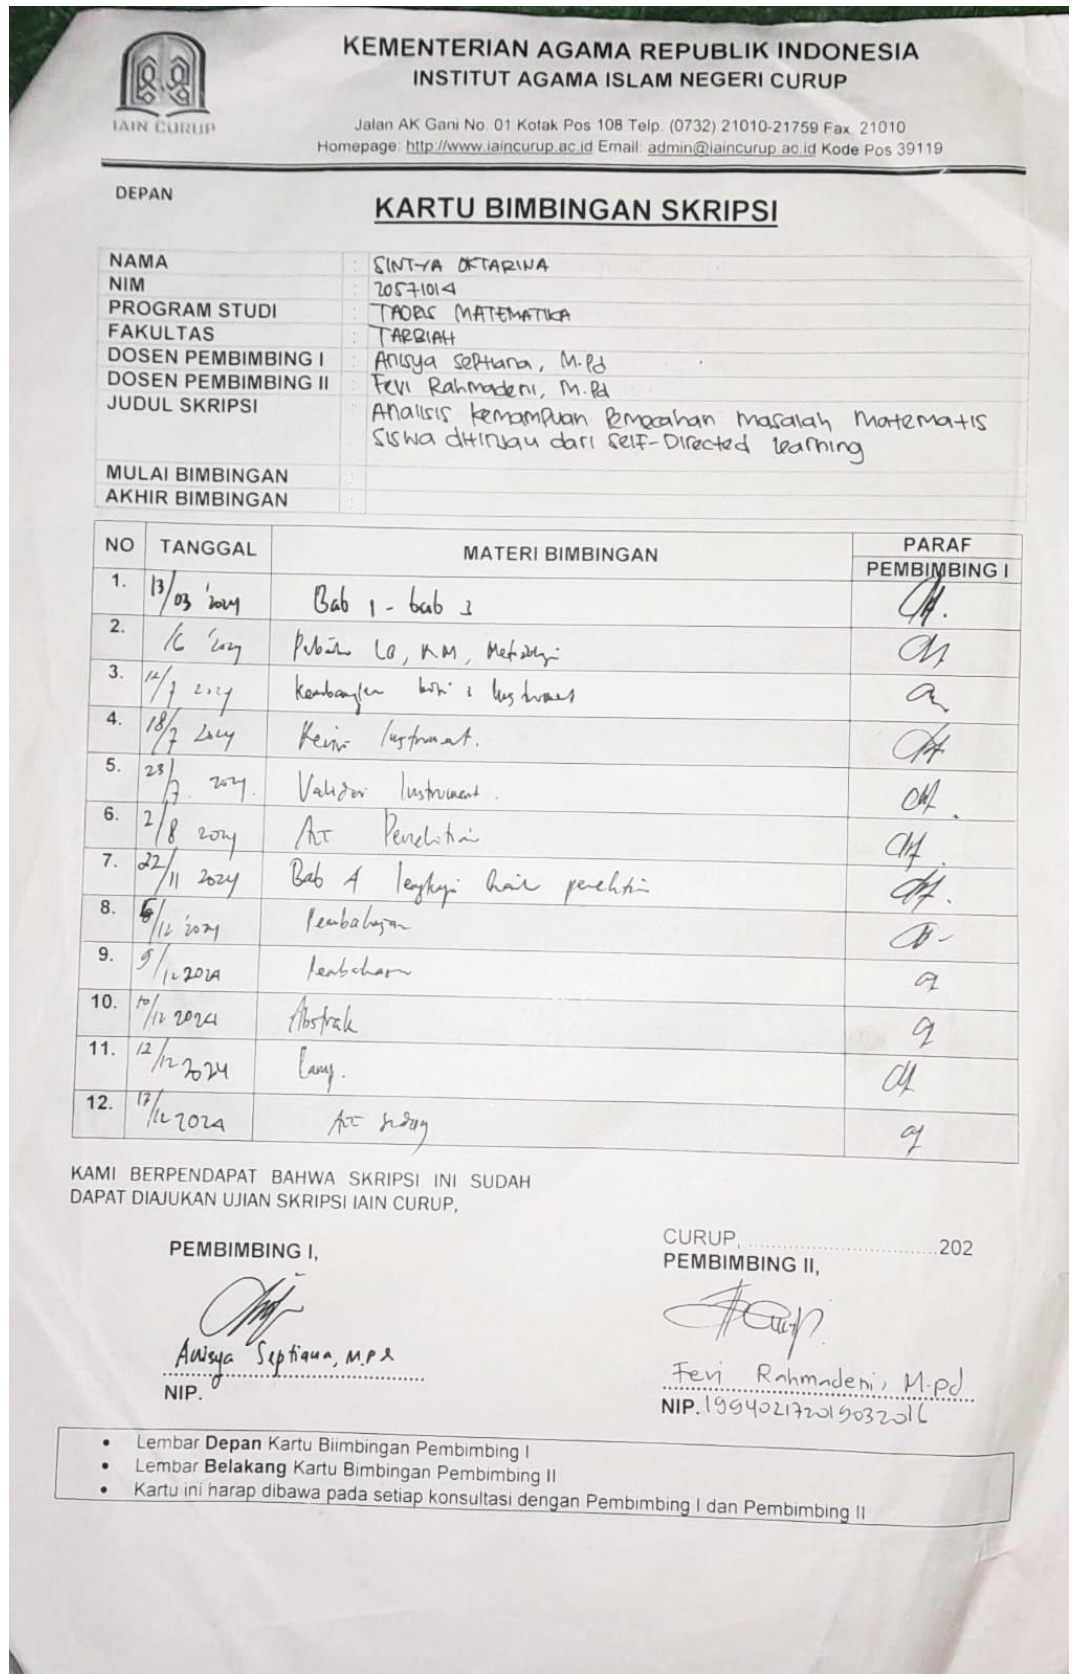 IAIN CURUP
KEMENTERIAN AGAMA REPUBLIK INDONESIA
INSTITUT AGAMA ISLAM NEGERI CURUP
Jalan AK Gani No. 01 Kotak Pos 108 Telp. (0732) 21010-21759 Fax. 21010
Homepage: http://www.iaincurup.ac.id Email: admin@iaincurup.ac.id Kode Pos 39119
DEPAN
KARTU BIMBINGAN SKRIPSI
NAMA : SINTYA OKTARINA
NIM : 20571014
PROGRAM STUDI : TADRIS MATEMATIKA
FAKULTAS : TARBIAH
DOSEN PEMBIMBING I : Anisya Septiana, M.Pd
DOSEN PEMBIMBING II : Fevi Rahmadeni, M.Pd
JUDUL SKRIPSI : Analisis kemampuan Pemecahan masalah matematis
siswa ditinjau dari Self-Directed Learning
MULAI BIMBINGAN :
AKHIR BIMBINGAN :
NO TANGGAL MATERI BIMBINGAN PARAF
PEMBIMBING I
1. 13/03 '2024 Bab 1 - bab 3
2. LB, RM, Metodologi
3. 2024
4. 18/7 2024 Instrument.
5. 23/7 2024. Validasi Instrument.
6. 2/8 2024 Acc Penelitian
7. 22/11 2024 Bab 4 lengkapi hasil penelitian
8. /12 '2024 Pembahasan
9. 9/12 2024 Pembahasan
10. 10/12 2024 Abstrak
11. 12/12 2024 Lamp.
12. 17/12 2024 Acc Sidang
KAMI BERPENDAPAT BAHWA SKRIPSI INI SUDAH
DAPAT DIAJUKAN UJIAN SKRIPSI IAIN CURUP,
CURUP, ................................202
PEMBIMBING I,
PEMBIMBING II,
Anisya Septiana, M.Pd
Fevi Rahmadeni, M.Pd
NIP.
NIP. 199402172019032016
• Lembar Depan Kartu Biimbingan Pembimbing I
• Lembar Belakang Kartu Bimbingan Pembimbing II
• Kartu ini harap dibawa pada setiap konsultasi dengan Pembimbing I dan Pembimbing II